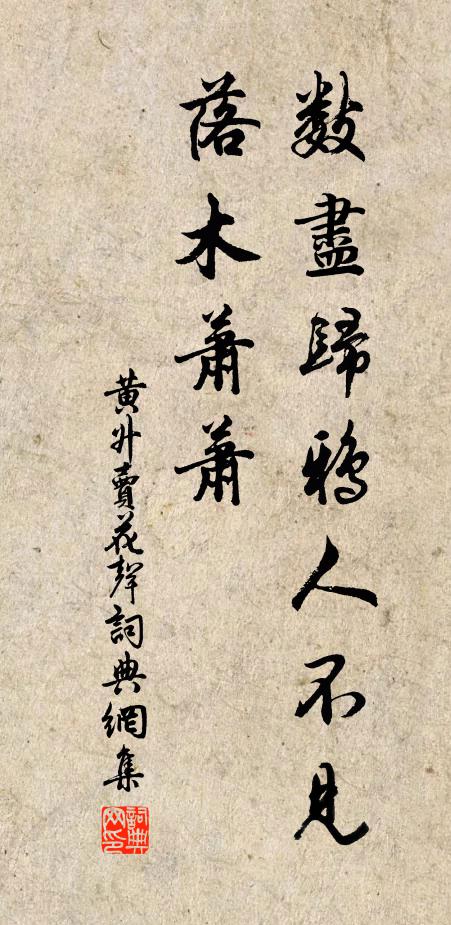 數盡歸鴉人不見
落木蕭蕭
黄升賣花聲詞典網集
詞典网印